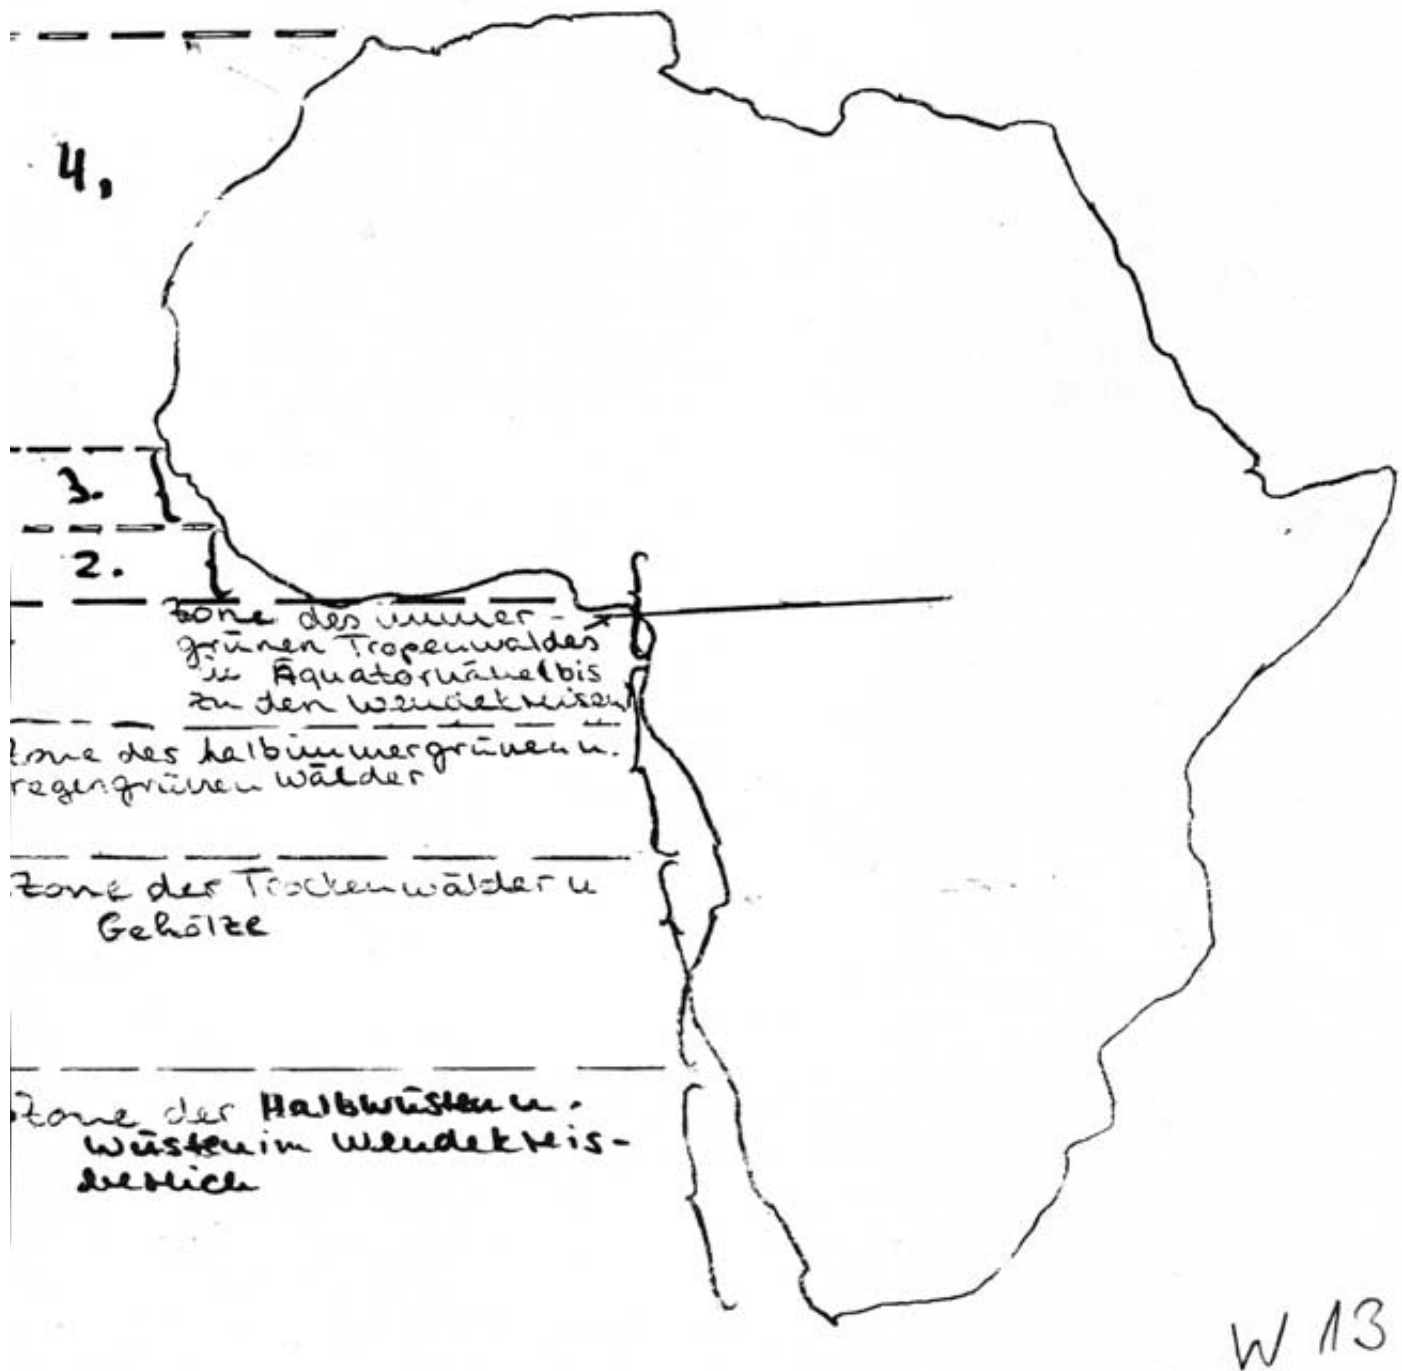 4.
3.
2.
Zone des immer-
grünen Tropenwaldes
in Äquatornähe (bis
zu den Wendekreisen)
Zone des halbimmergrünen u.
regengrünen Wälder
Zone der Trockenwälder u
Gehölze
Zone der Halbwüsten u.
Wüsten im Wendekreis-
bereich
W 13